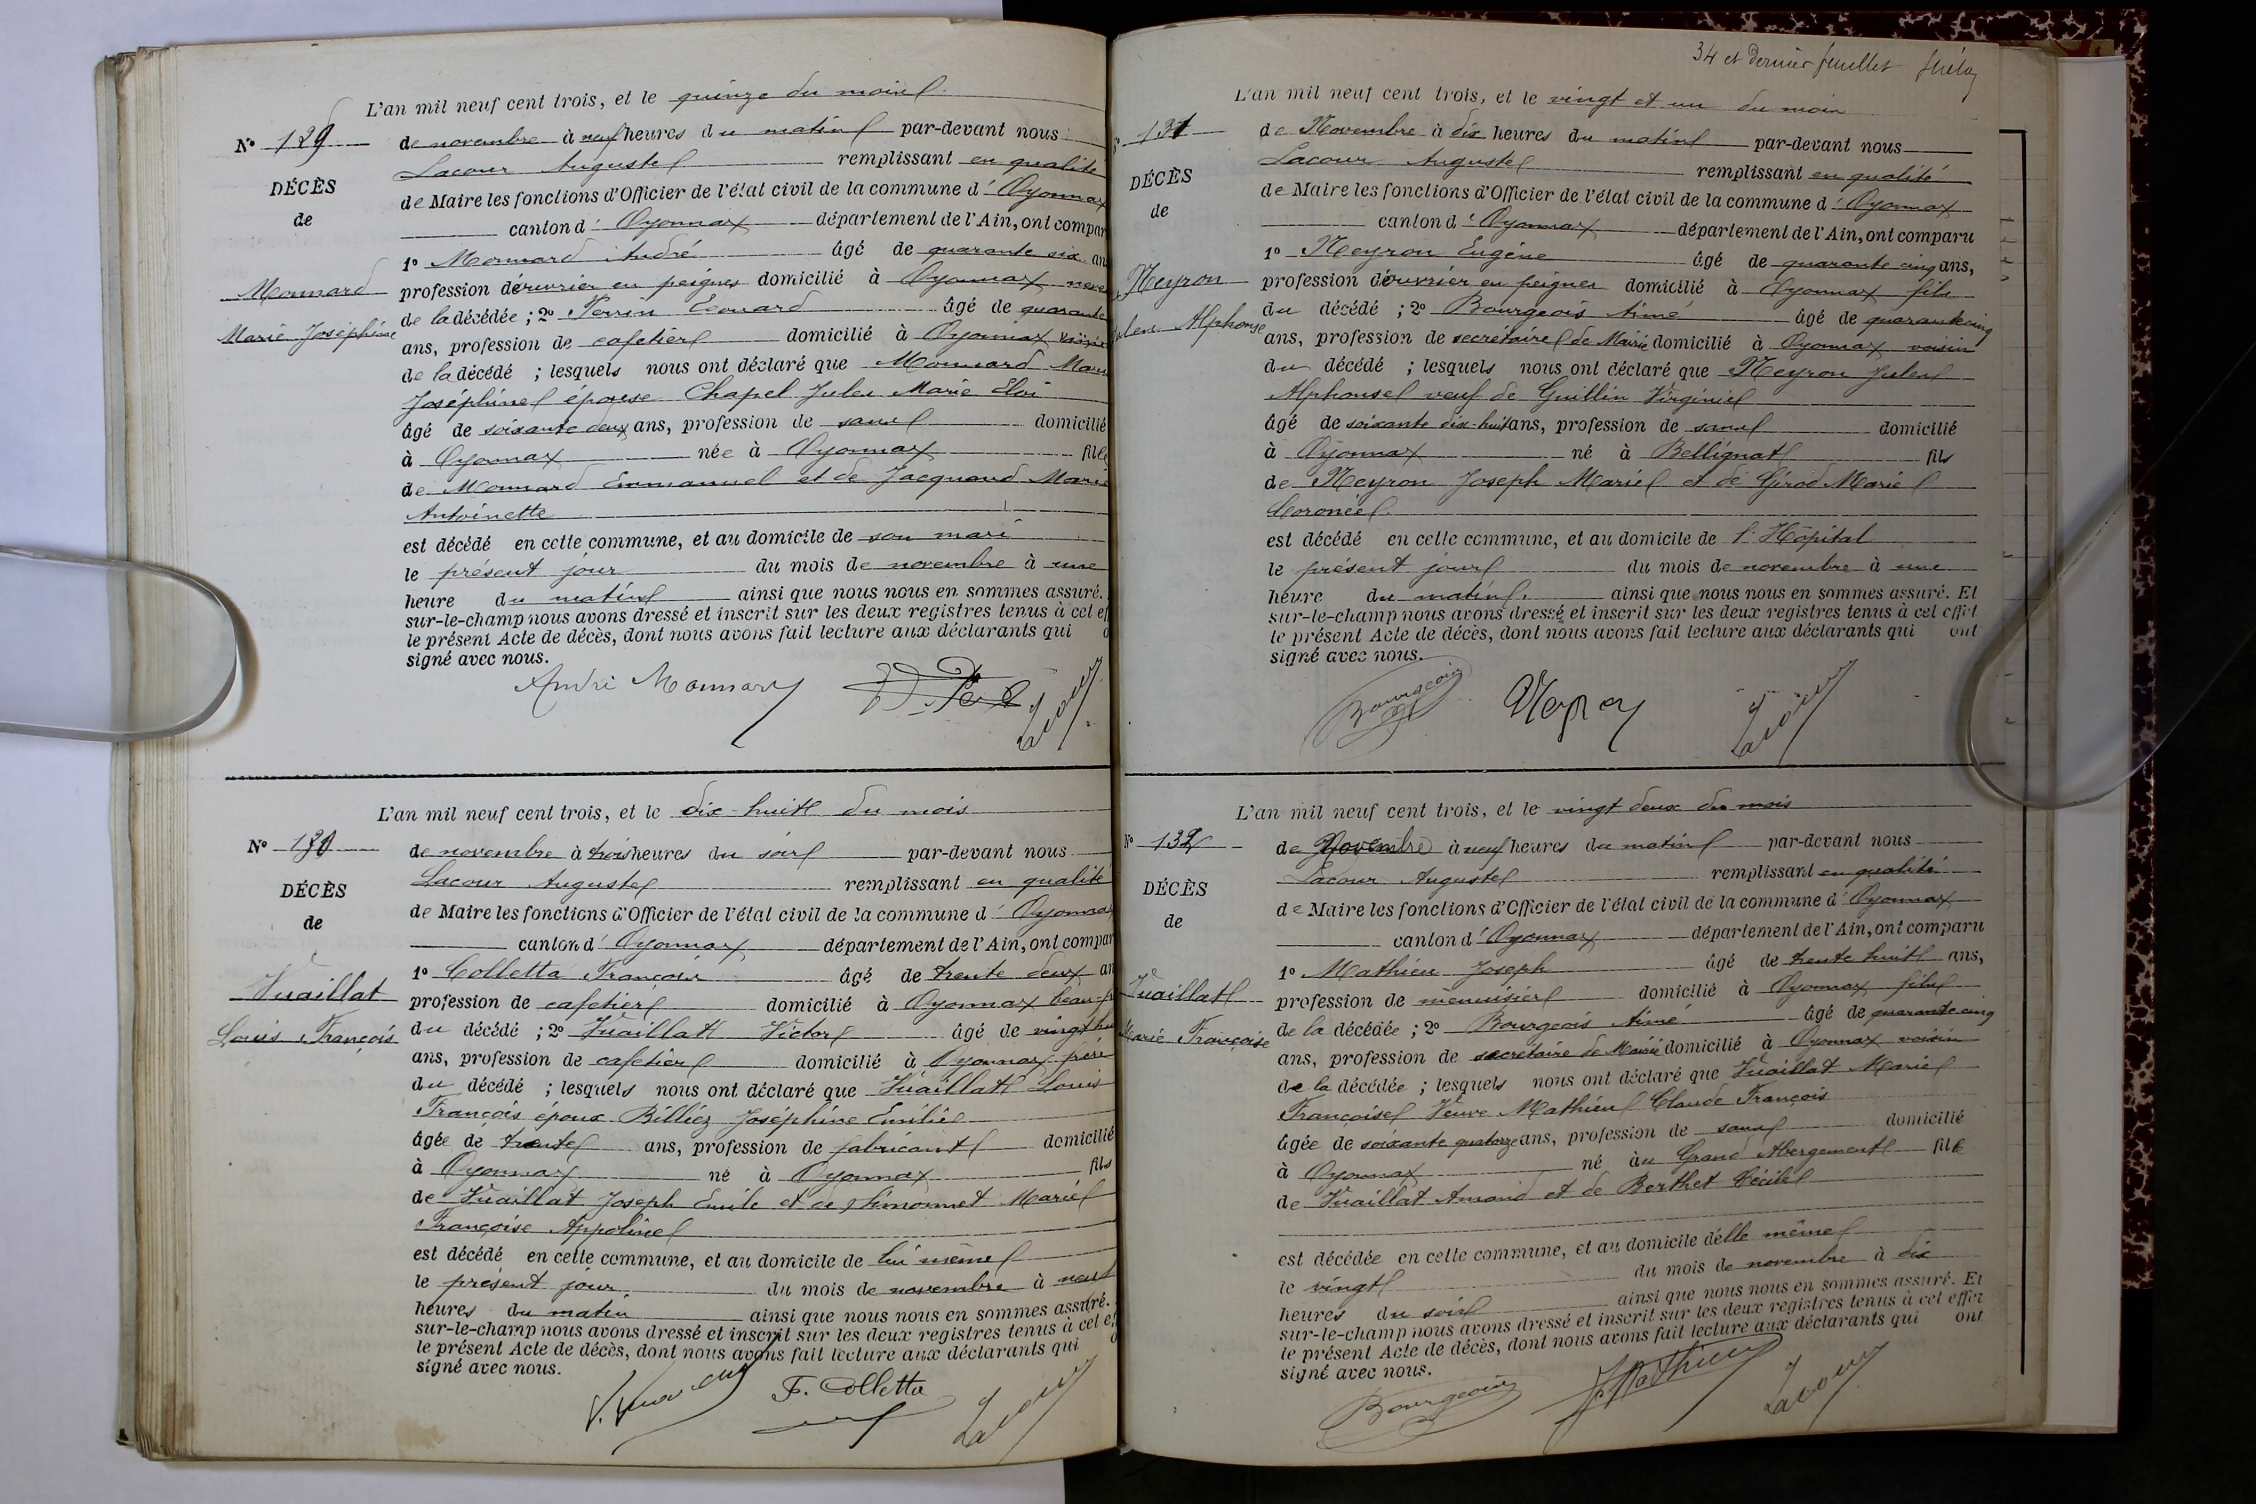 L'an mil neuf cent trois, et le quinze du mois
N° 129
de novembre à neuf heures du matin par-devant nous
Lacour Auguste remplissant en qualité
DÉCÈS
de Maire les fonctions d'Officier de l'état civil de la commune d' Oyonnax
de
canton d' Oyonnax département de l'Ain, ont compar
1° Monnard André âgé de quarante six an
Monnard
profession d'ouvrier en peignes domicilié à Oyonnax neveu
Marie Joséphine
de la décédée ; 2° Perrin Léonard âgé de quarante
ans, profession de cafetier domicilié à Oyonnax voisin
de la décédé ; lesquels nous ont déclaré que Monnard Marie
Joséphine épouse Chapel Jules Marie Eloi
âgé de soixante deux ans, profession de sans domicilié
à Oyonnax née à Oyonnax fille
de Monnard Emmanuel et de Jacquand Marie
Antoinette
est décédé en cette commune, et au domicile de son mari
le présent jour du mois de novembre à une
heure du matin ainsi que nous nous en sommes assuré.
sur-le-champ nous avons dressé et inscrit sur les deux registres tenus à cet ef
le présent Acte de décès, dont nous avons fait lecture aux déclarants qui o
signé avec nous.
André Monnard Lacour
L'an mil neuf cent trois, et le dix-huit du mois
N° 130
de novembre à trois heures du soir par-devant nous
Lacour Auguste remplissant en qualité
DÉCÈS
de Maire les fonctions d'Officier de l'état civil de la commune d' Oyonnax
de
canton d' Oyonnax département de l'Ain, ont compar
1° Colletta François âgé de trente deux an
Vuaillat
profession de cafetier domicilié à Oyonnax beau-fr
Louis François
du décédé ; 2° Vuaillat Victor âgé de vingt hui
ans, profession de cafetier domicilié à Oyonnax frère
du décédé ; lesquels nous ont déclaré que Vuaillat Louis
François époux Billiez Joséphine Emilie
âgée de trente ans, profession de fabricant domicilié
à Oyonnax né à Oyonnax fils
de Vuaillat Joseph Emile et de Simonnet Marie
Françoise Appoline
est décédé en cette commune, et au domicile de lui même
le présent jour du mois de novembre à neuf
heures du matin ainsi que nous nous en sommes assuré.
sur-le-champ nous avons dressé et inscrit sur les deux registres tenus à cet ef
le présent Acte de décès, dont nous avons fait lecture aux déclarants qui o
signé avec nous.
F. Colletta Lacour
34 et dernier feuillet
L'an mil neuf cent trois, et le vingt et un du mois
131
de Novembre à dix heures du matin par-devant nous
Lacour Auguste remplissant en qualité
DÉCÈS
de Maire les fonctions d'Officier de l'état civil de la commune d' Oyonnax
de
canton d' Oyonnax département de l'Ain, ont comparu
1° Neyron Eugène âgé de quarante cinq ans,
Neyron
profession d'ouvrier en peignes domicilié à Oyonnax fils
Jules Alphonse
du décédé ; 2° Bourgeois Aimé âgé de quarante cinq
ans, profession de secrétaire de Mairie domicilié à Oyonnax voisin
du décédé ; lesquels nous ont déclaré que Neyron Jules
Alphonse veuf de Guillin Virginie
âgé de soixante dix-huit ans, profession de sans domicilié
à Oyonnax né à Bellignat fils
de Neyron Joseph Marie et de Girod Marie
Coronée
est décédé en cette commune, et au domicile de l'Hôpital
le présent jour du mois de novembre à une
heure du matin. ainsi que nous nous en sommes assuré. Et
sur-le-champ nous avons dressé et inscrit sur les deux registres tenus à cet effet
le présent Acte de décès, dont nous avons fait lecture aux déclarants qui ont
signé avec nous.
Bourgeois Neyron Lacour
L'an mil neuf cent trois, et le vingt deux du mois
N° 132
de Novembre à neuf heures du matin par-devant nous
Lacour Auguste remplissant en qualité
DÉCÈS
de Maire les fonctions d'Officier de l'état civil de la commune d' Oyonnax
de
canton d' Oyonnax département de l'Ain, ont comparu
1° Mathieu Joseph âgé de trente huit ans,
Vuaillat
profession de menuisier domicilié à Oyonnax fils
Marie Françoise
de la décédée ; 2° Bourgeois Aimé âgé de quarante cinq
ans, profession de secrétaire de Mairie domicilié à Oyonnax voisin
de la décédée ; lesquels nous ont déclaré que Vuaillat Marie
Françoise Veuve Mathieu Claude François
âgée de soixante quatorze ans, profession de sans domicilié
à Oyonnax né au Grand Abergement fille
de Vuaillat Amand et de Berthet Cécile
est décédée en cette commune, et au domicile d'elle même
le vingt du mois de novembre à dix
heures du soir ainsi que nous nous en sommes assuré. Et
sur-le-champ nous avons dressé et inscrit sur les deux registres tenus à cet effet
le présent Acte de décès, dont nous avons fait lecture aux déclarants qui ont
signé avec nous.
Bourgeois J. Mathieu Lacour